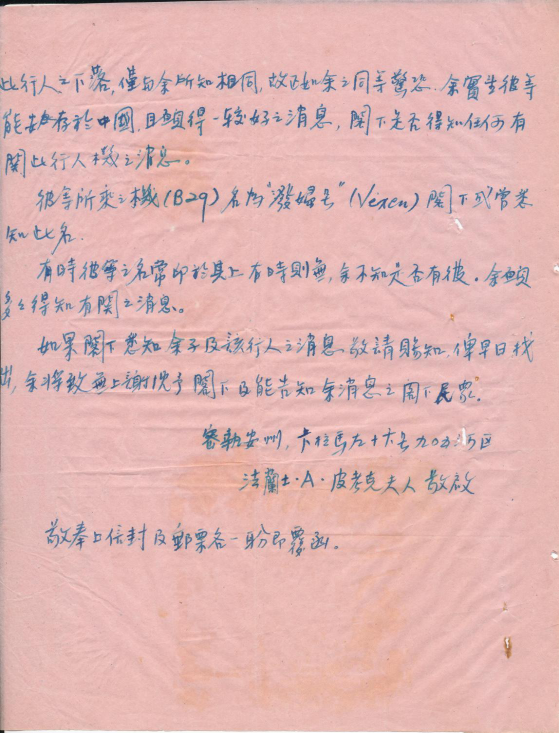 此行人之下落,僅與余所知相同,故正如余之同等驚恐.余實望彼等
能安存於中國,且願得一较好之消息,閣下是否得知任何有
関此行人機之消息。
彼等所乘之機(B29)名為"潑婦号"(Vixen)閣下或當悉
知此名.
有時彼等之名常印於其上有時則無,余不知是否有彼.余願
多々得知有関之消息。
如果閣下悉知余子及該行人之消息,敬請賜知,俾早日找
出,余将致無上謝忱予閣下及能告知余消息之閣下民眾.
密執安州,卡拉馬九十六号九〇五 区
法蘭士·A·皮考克夫人 敬啟
敬奉上信封及郵票各一盼即覆函。